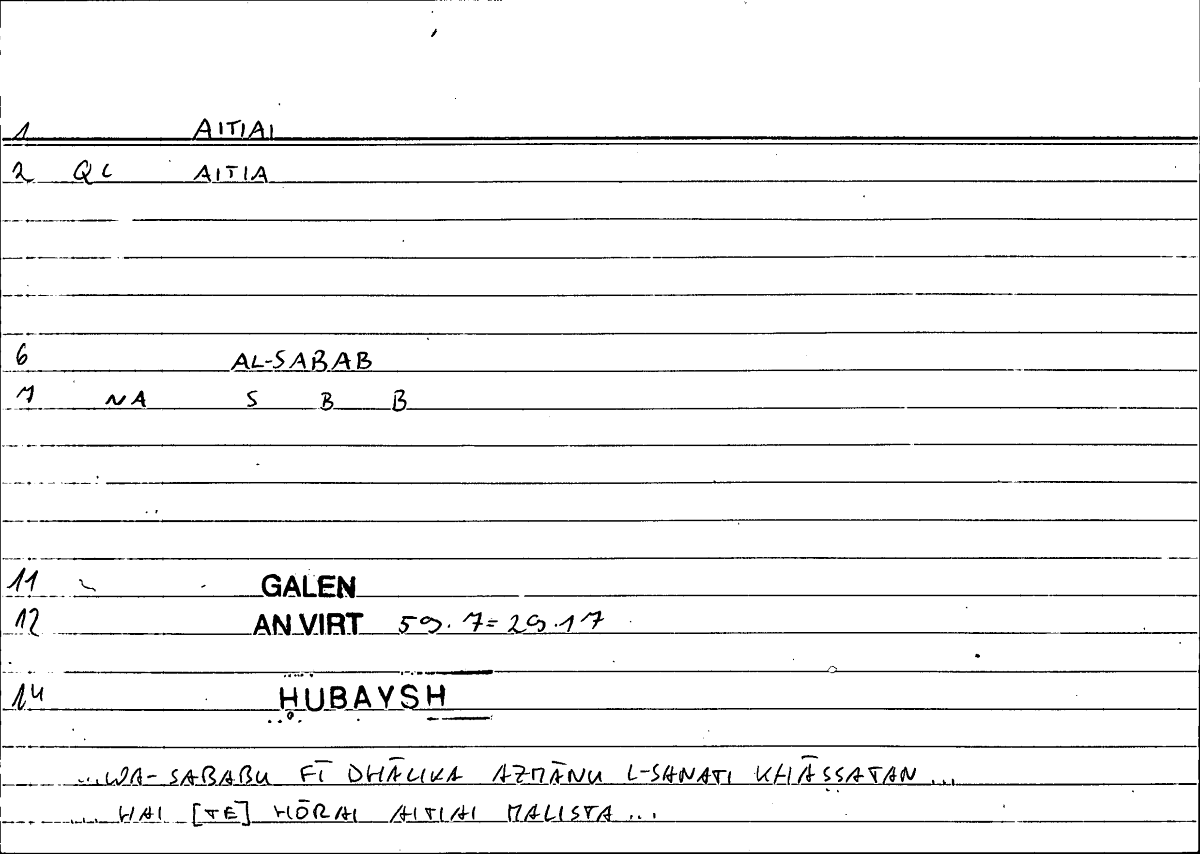 1 AITIAI
2 QC AITIA
6 AL-SABAB
7 NA S B B
11 GALEN
12 AN VIRT 59.7=29.17
14 ḤUBAYSH
...WA-SABABU FĪ DHĀLIKA AZMĀNU L-SANATI KHĀṢṢATAN...
... HAI [TE] HŌRAI AITIAI MALISTA...